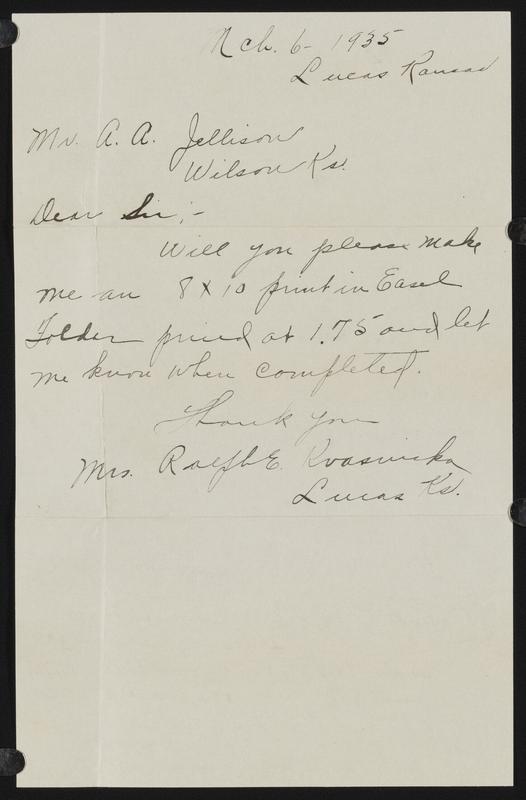 Mch. 6- 1935
Lucas Kansas
Mr. A. A. Jellison
Wilson Ks.
Dear Sir;-
Will you please make
me an 8 X 10 print in Easel
Folder priced at 1.75 and let
me know when completed.
Thank you
Mrs. Ralph E. Kvasnicka
Lucas Ks.